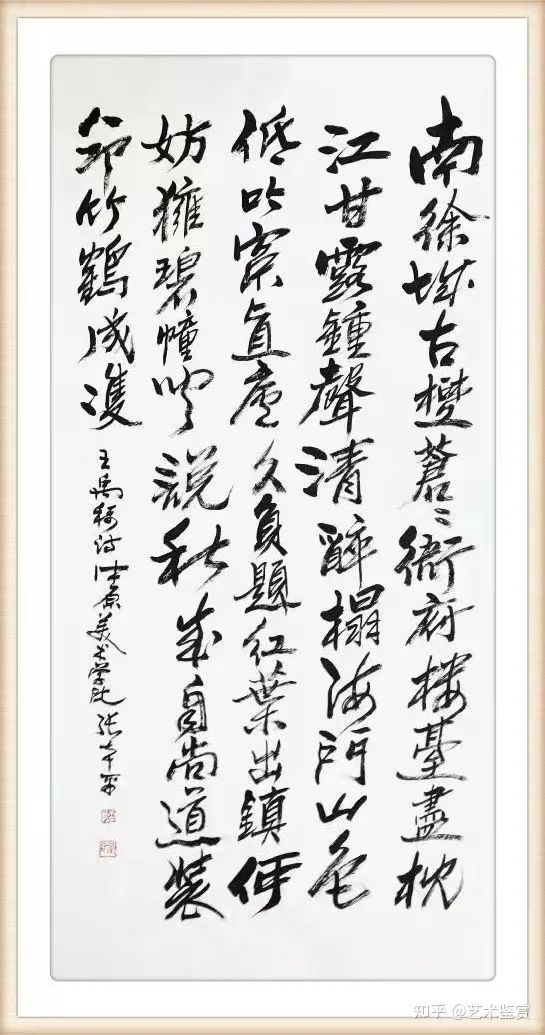 南徐城古樹蒼〻衙府樓臺盡枕
江甘露鍾聲清醉榻海門山色
低吟窓直廬久負題紅葉出鎮何
妨擁碧幢聞説秋來自尚道裝
筇竹鶴成雙
王禹稱诗 原美术学院张本平
知乎 @艺术鉴赏